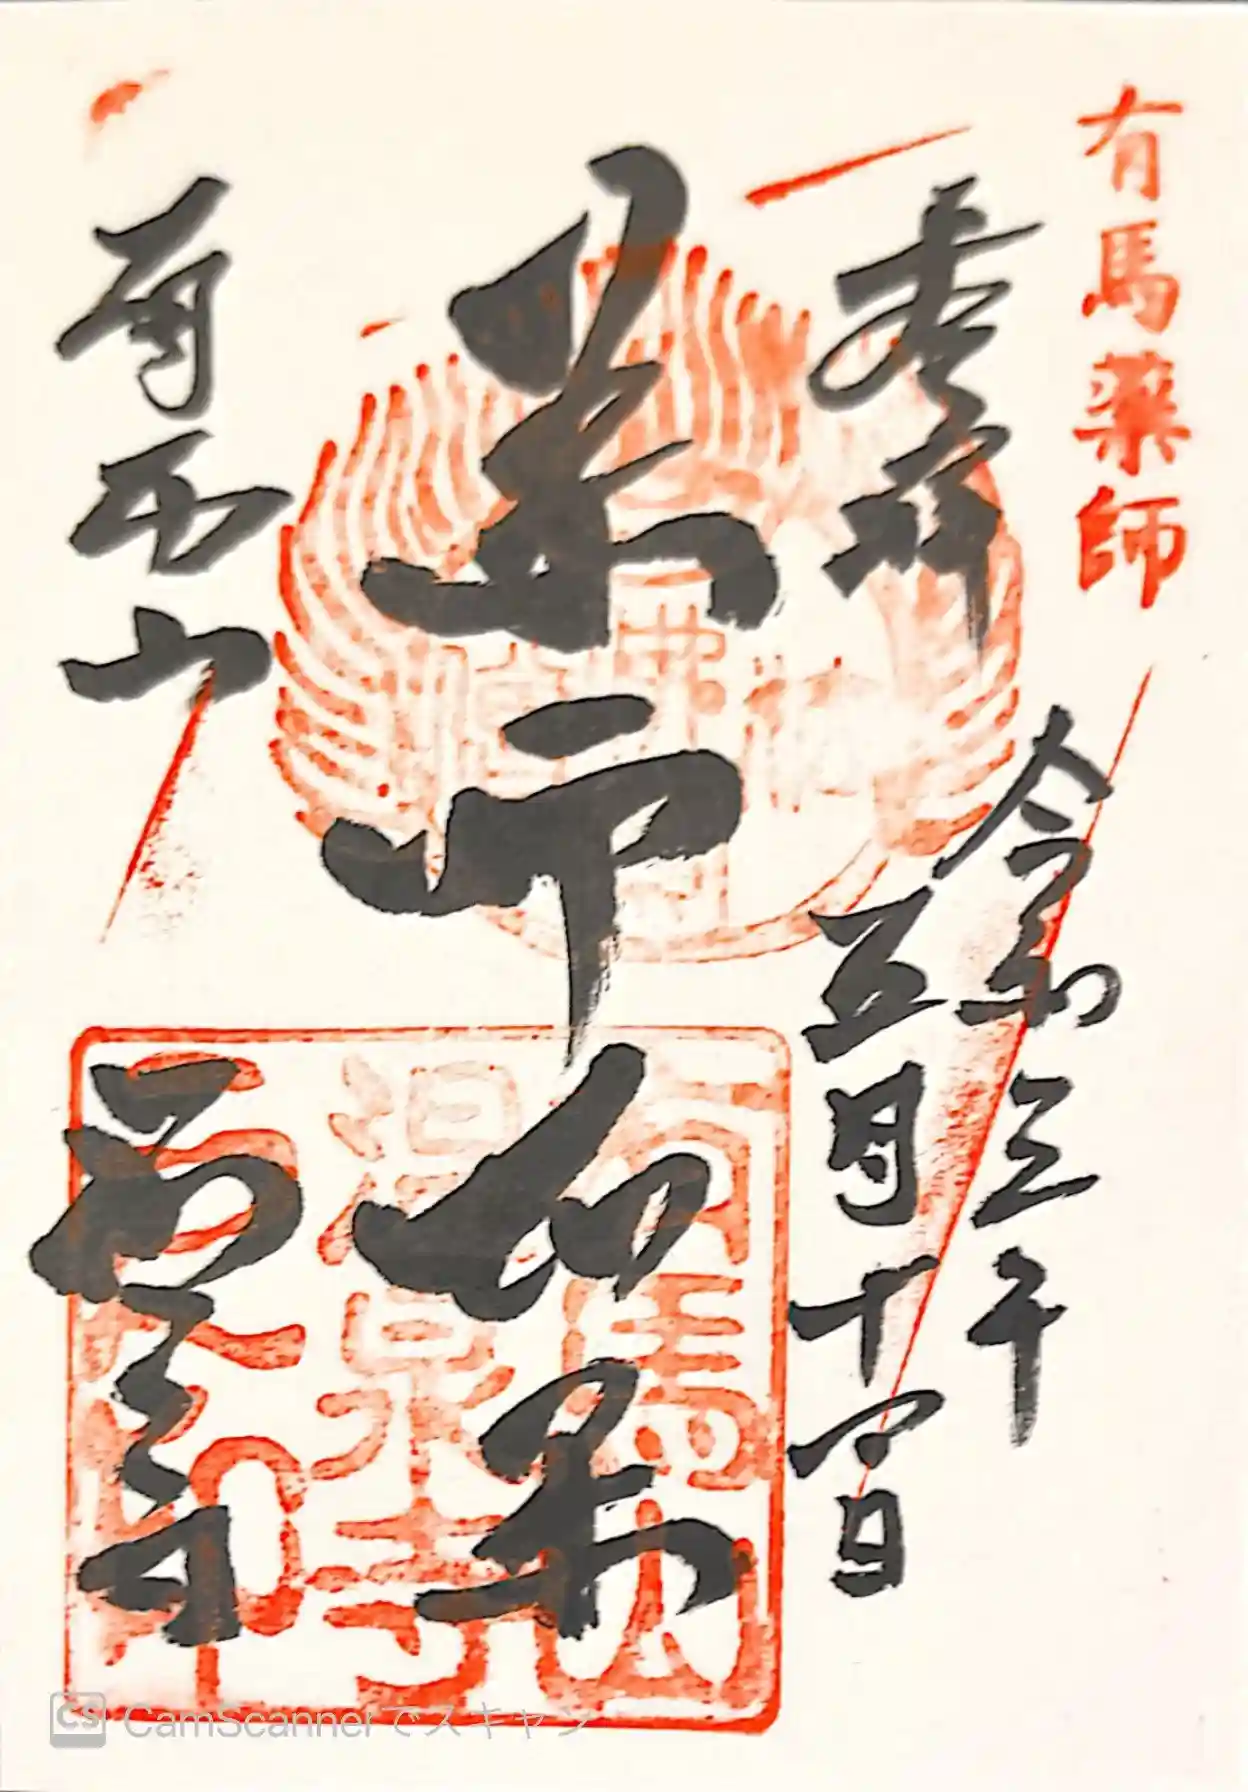 有馬薬師
奉拝
令和三年
五月十四日
薬師如来
有馬山
温泉寺
有馬山
温泉寺
之印
CamScannerでスキャン